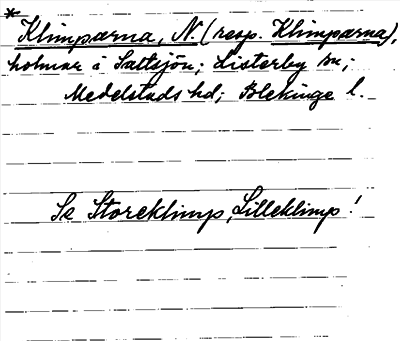 *
Klimparna, N. (resp. Klimparna),
holmar i Saltsjön; Listerby sn;
Medelstads hd; Blekinge l.
Se Storeklimp, Lilleklimp!